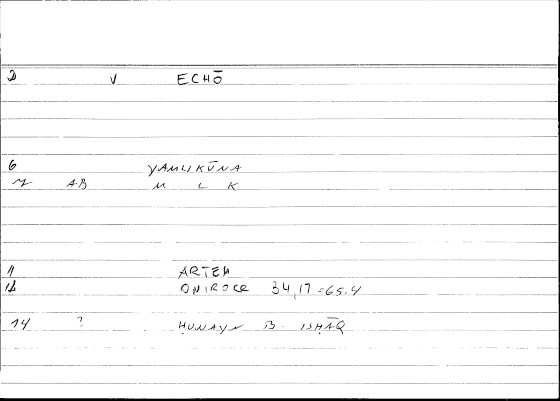 2 V ECHŌ
6 YAMLIKŪNA
M AB M L K
11 ARTEM
12 ONIROCR 34,17 = 65.4
14 ? ḤUNAYN B. ISḤĀQ